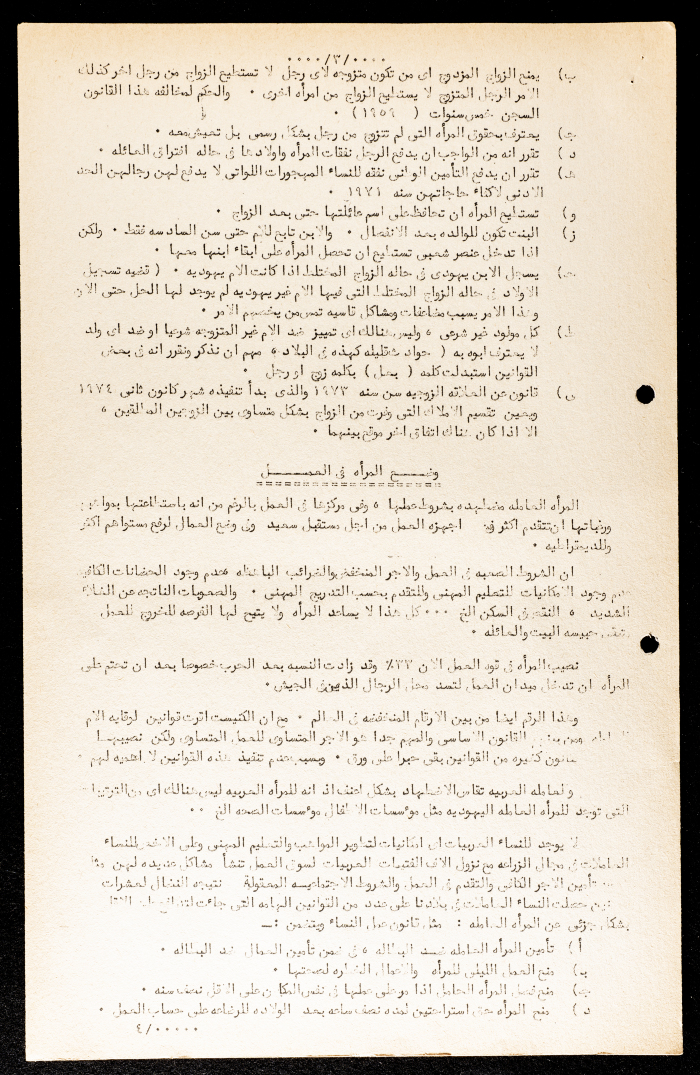 ٠٠٠٠/٣/٠٠٠٠
ب) يمنع الزواج المزدوج اى من تكون متزوجه لاى رجل لا تستطيع الزواج من رجل اخر كذلك
الامر الرجل المتزوج لا يستطيع الزواج من امرأه اخرى ٠ والحكم لمخالفه هذا القانون
السجن خمس سنوات ( ١٩٥٩ ) ٠
ج) يعترف بحقوق المرأه التى لم تتزوج من رجل بشكل رسمى بل تعيش معه ٠
د ) تقرر انه من الواجب ان يدفع الرجل نفقات المرأه واولادها فى حاله افتراق العائله ٠
هـ) تقرر ان يدفع التأمين الوطنى نفقه للنساء المهجورات اللواتى لا يدفع لهن رجالهن الحد
الادنى لاكفاء حاجاتهن سنه ١٩٧١ ٠
و) تستطيع المرأه ان تحافظ على اسم عائلتها حتى بعد الزواج ٠
ز) البنت تكون للوالده بعد الانفصال ٠ والابن تابع للام حتى سن السادسه فقط ٠ ولكن
اذا تدخل عنصر شعبى تستطيع ان تحصل المرأه على ابقاء ابنها معها ٠
ح) يسجل الابن يهودى فى حاله الزواج المختلط اذا كانت الام يهوديه ٠ ( قضيه تسجيل
الاولاد فى حاله الزواج المختلط التى فيها الام غير يهوديه لم يوجد لها الحل حتى الان
وهذا الامر يسبب مضاعفات ومشاكل قاسيه تمس من يخصهم الامر ٠
ط) كل مولود غير شرعى ، وليس هنالك اى تمييز ضد الام غير المتزوجه شرعيا او ضد اى ولد
لا يعترف ابوه به ( حوادث قليله كهذه فى البلاد ، مهم ان نذكر ونقرر انه فى بعض
القوانين استبدلت كلمه ( بعل ) بكلمه زوج او رجل ٠
ى) قانون عن العلاقه الزوجيه سن سنه ١٩٧٣ والذى بدأ تنفيذه شهر كانون ثانى ١٩٧٤
ويعين تقسيم الاملاك التى وفرت من الزواج بشكل متساوى بين الزوجين المطلقين ،
الا اذا كان هناك اتفاق اخر موقع بينهما ٠
وضـــع المرأه فى العمـــــل
المرأه العامله مضطهده بشروط عملها ، وفى مركزها فى العمل بالرغم من انه باستطاعتها بمواهبها
ورغباتها ان تتقدم اكثر فى اجهزه العمل من اجل مستقبل سعيد وفى وضع العمال لرفع مستواهم اكثر
وللديمقراطيه ٠
ان الشروط الصعبه فى العمل والاجر المنخفض والضرائب الباهظه ، عدم وجود الحضانات الكافيه
عدم وجود الامكانيات للتعليم المهنى والتقدم بحسب التدريج المهنى ٠ والصعوبات الناتجه عن الغلاء
الشديد ، النقص فى السكن الخ ٠٠٠ كل هذا لا يساعد المرأه ولا يتيح لها الفرصه للخروج للعمل
حبيسه البيت والعائله ٠
نصيب المرأه فى قوه العمل الان ٣٣٪ وقد زادت النسبه بعد الحرب خصوصا بعد ان تحتم على
المرأه ان تدخل ميدان العمل لتسد محل الرجال الذين فى الجيش ٠
وهذا الرقم ايضا من بين الارقام المنخفضه فى العالم ٠ مع ان الكنيست اقرت قوانين لوقايه الام
القانون الاساسى والمهم جدا هو الاجر المتساوى للعمل المتساوى ولكن نصيبهـا
كثيره من القوانين بقى حبرا على ورق ٠ وبسبب عدم تنفيذ هذه القوانين لا اهميه لهم ٠
والعامله العربيه تقاس الاضطهاد بشكل اعنف اذ انه للمرأه العربيه ليس هنالك اى من الترتيبات
التى توجد للمرأه العامله اليهوديه مثل مؤسسات الاطفال مؤسسات الصحه الخ ٠٠
لا يوجد للنساء العربيات اى امكانيات لتطوير المواهب والتعليم المهنى وعلى الاخص للنساء
العاملات فى مجال الزراعه مع نزول الاف الفتيات العربيات لسوق العمل تنشأ مشاكل عديده لهن مثل
تأمين الاجر الكافى والتقدم فى العمل والشروط الاجتماعيه المعقولة نتيجه النضال لعشرات
حصلت النساء العاملات فى بلادنا على عدد من القوانين الهامه التى جاءت
بشكل جزئى عن المرأه العامله : مثل قانون عمل النساء ويتضمن :ــ
أ ) تأمين المرأه العامله ضـد البطاله ، فى ضمن تأمين العمال ضد البطاله ٠
ب) منع العمل الليلى للمرأه والاعمال الضاره لصحتها ٠
ج) منع فصل المرأه الحامل اذا مر على عملها فى نفس المكان على الاقل نصف سنه ٠
د ) منح المرأه حق استراحتين لمده نصف ساعه بعد الولاده للرضاعه على حساب العمل ٠
٤/٠٠٠٠٠